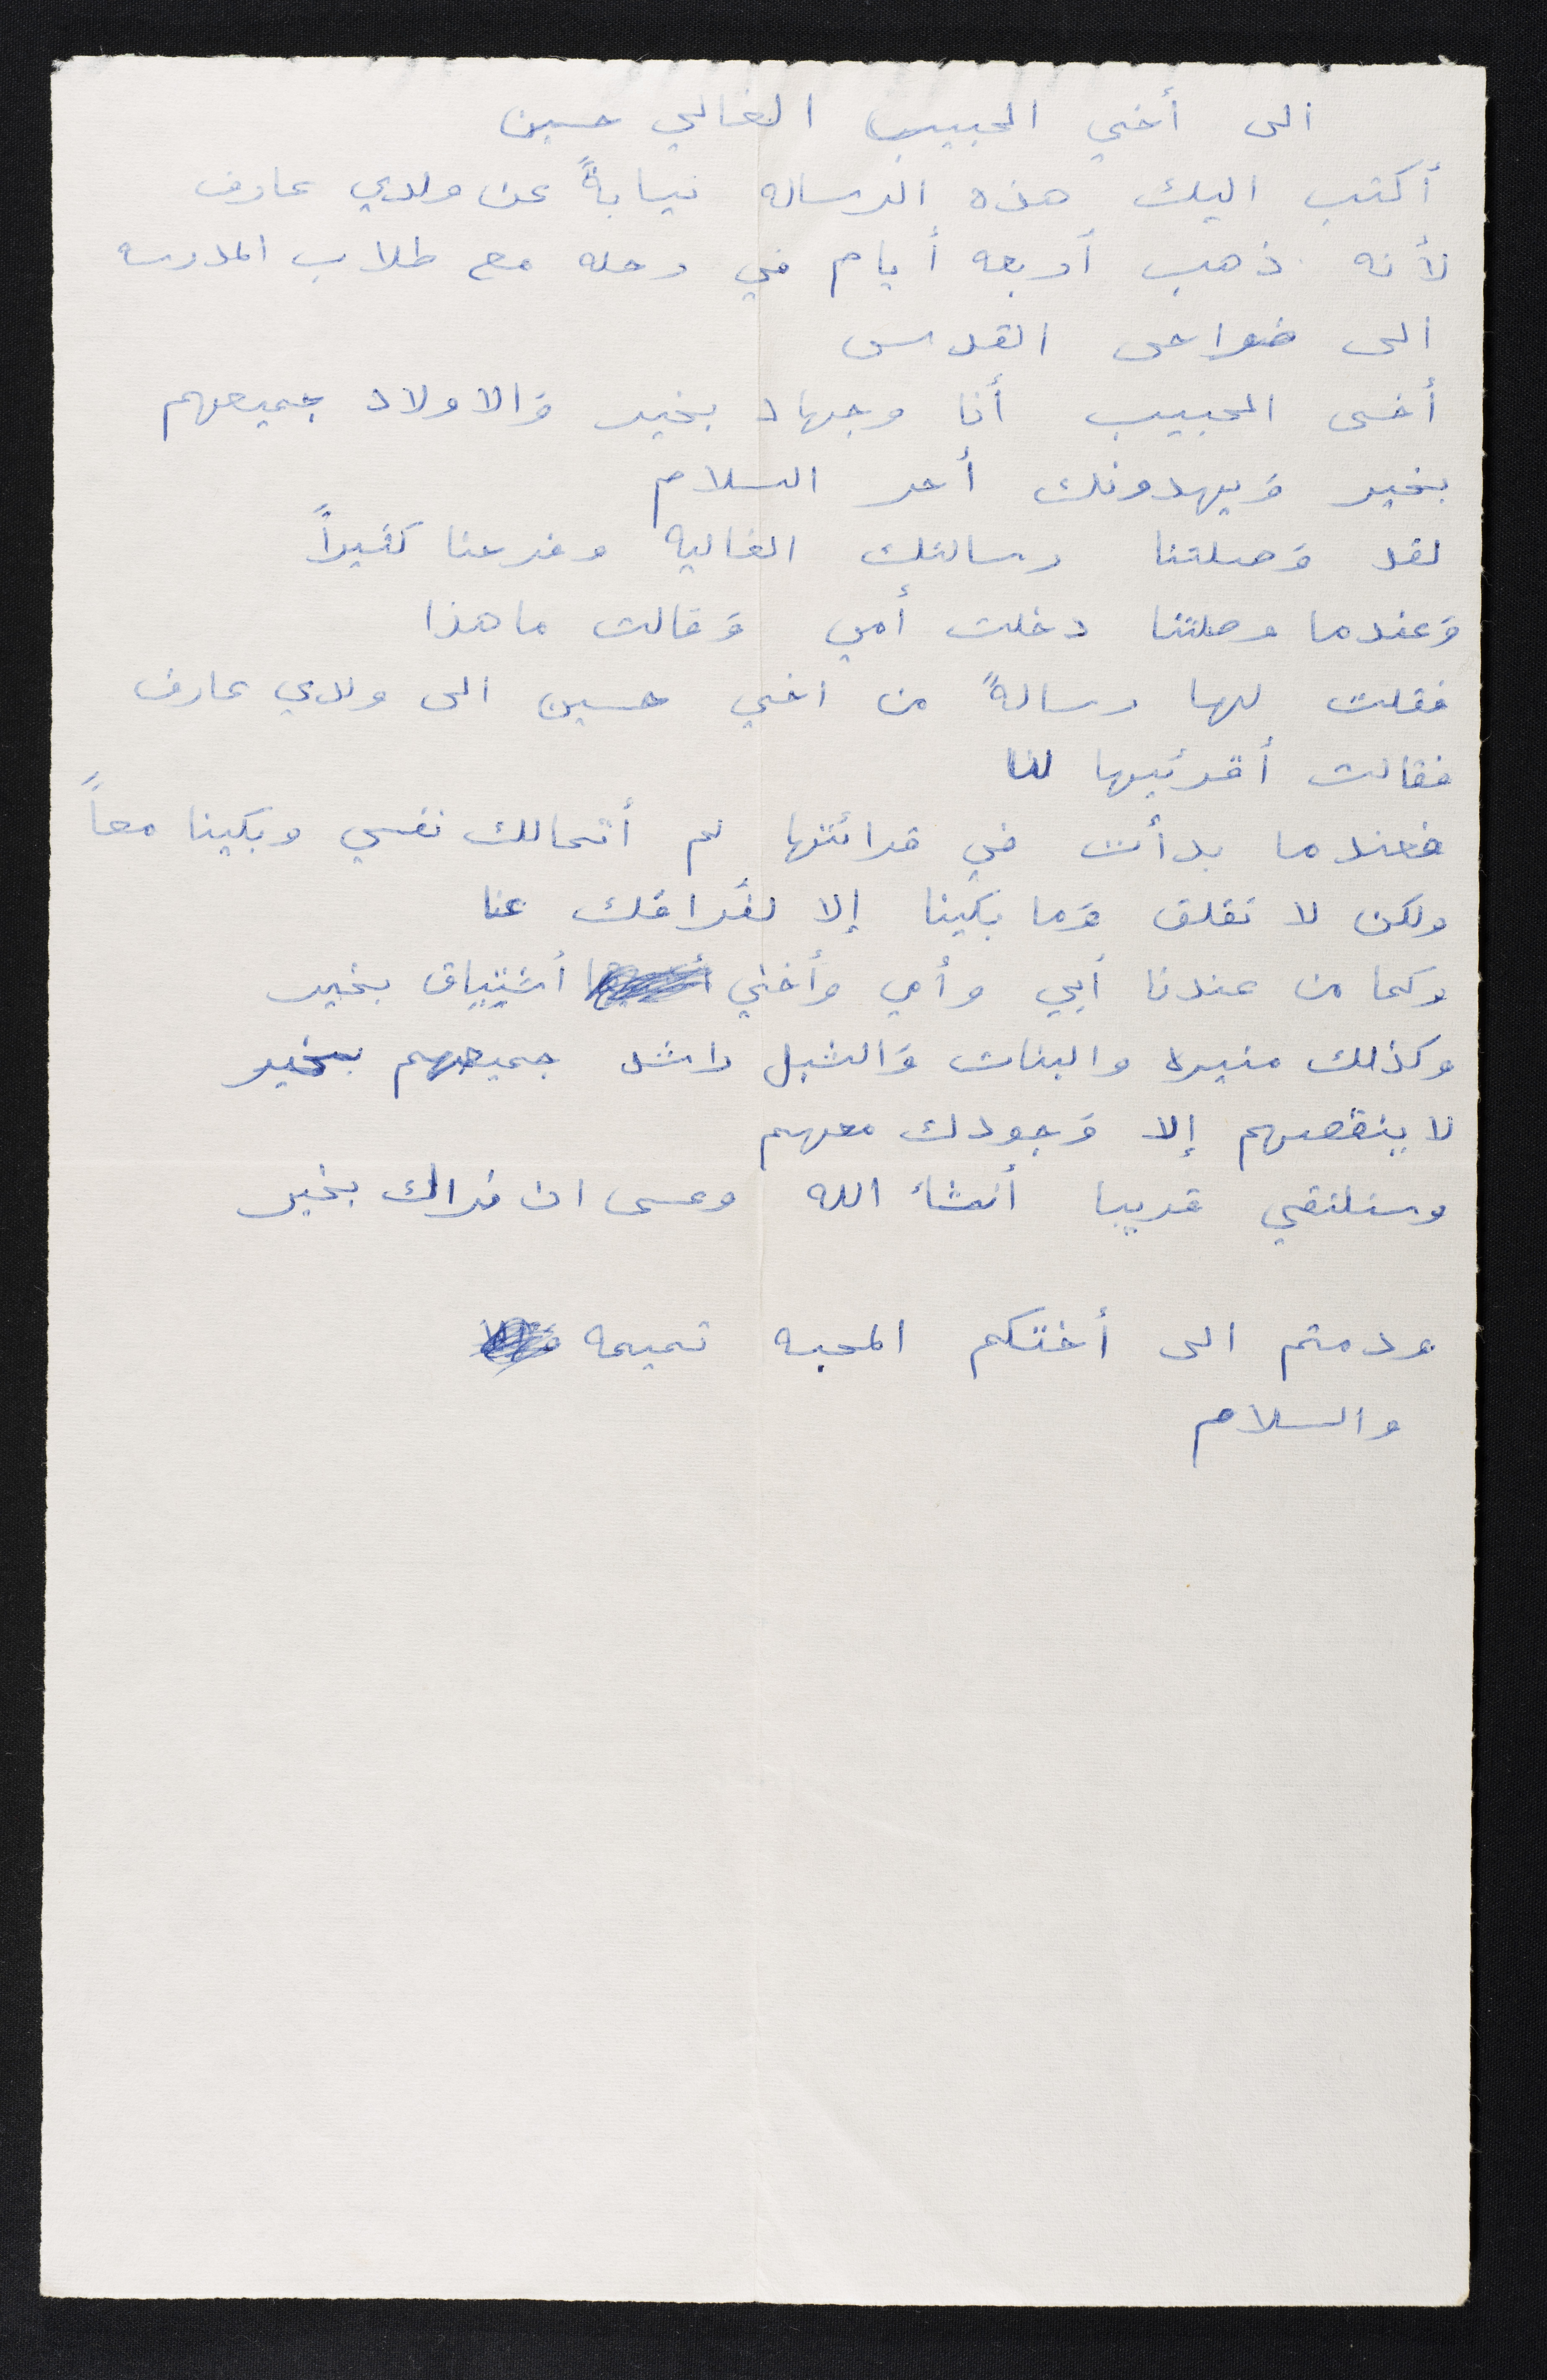 الى أخي الحبيب الغالي حسين
أكتب اليك هذه الرساله نيابةً عن ولدي عارف
لأنه ذهب أربعه أيام في رحله مع طلاب المدرسه
الى ضواحى القدس
أخى الحبيب أنا وجهاد بخير وَالاولاد جميعهم
بخير وَيهدونك أحر السلام
لقد وَصلتنا رسالتك الغاليه وفرحنا كثيراً
وَعندما وصلتنا دخلت أمي وَقالت ما هذا
فقلت لها رسالةً من اخي حسين الى ولدي عارف
فقالت أقرئيها لنا
فعندما بدأت في قرائتها لم أتمالك نفسي وبكينا معاً
ولكن لا تقلق وَما بكينا إلا لفُراقك عنا
وكما من عندنا أبي وأمي وأختي أشتياق بخير
وكذلك منيره والبنات وَالشبل راشد جميعهم بخير
لا ينقصهم إلا وَجودك معهم
وسنلتقي قريبا أنشاء الله وعسى ان نراك بخير
ودمتم الى أختكم المحبه تميمه
والسلام